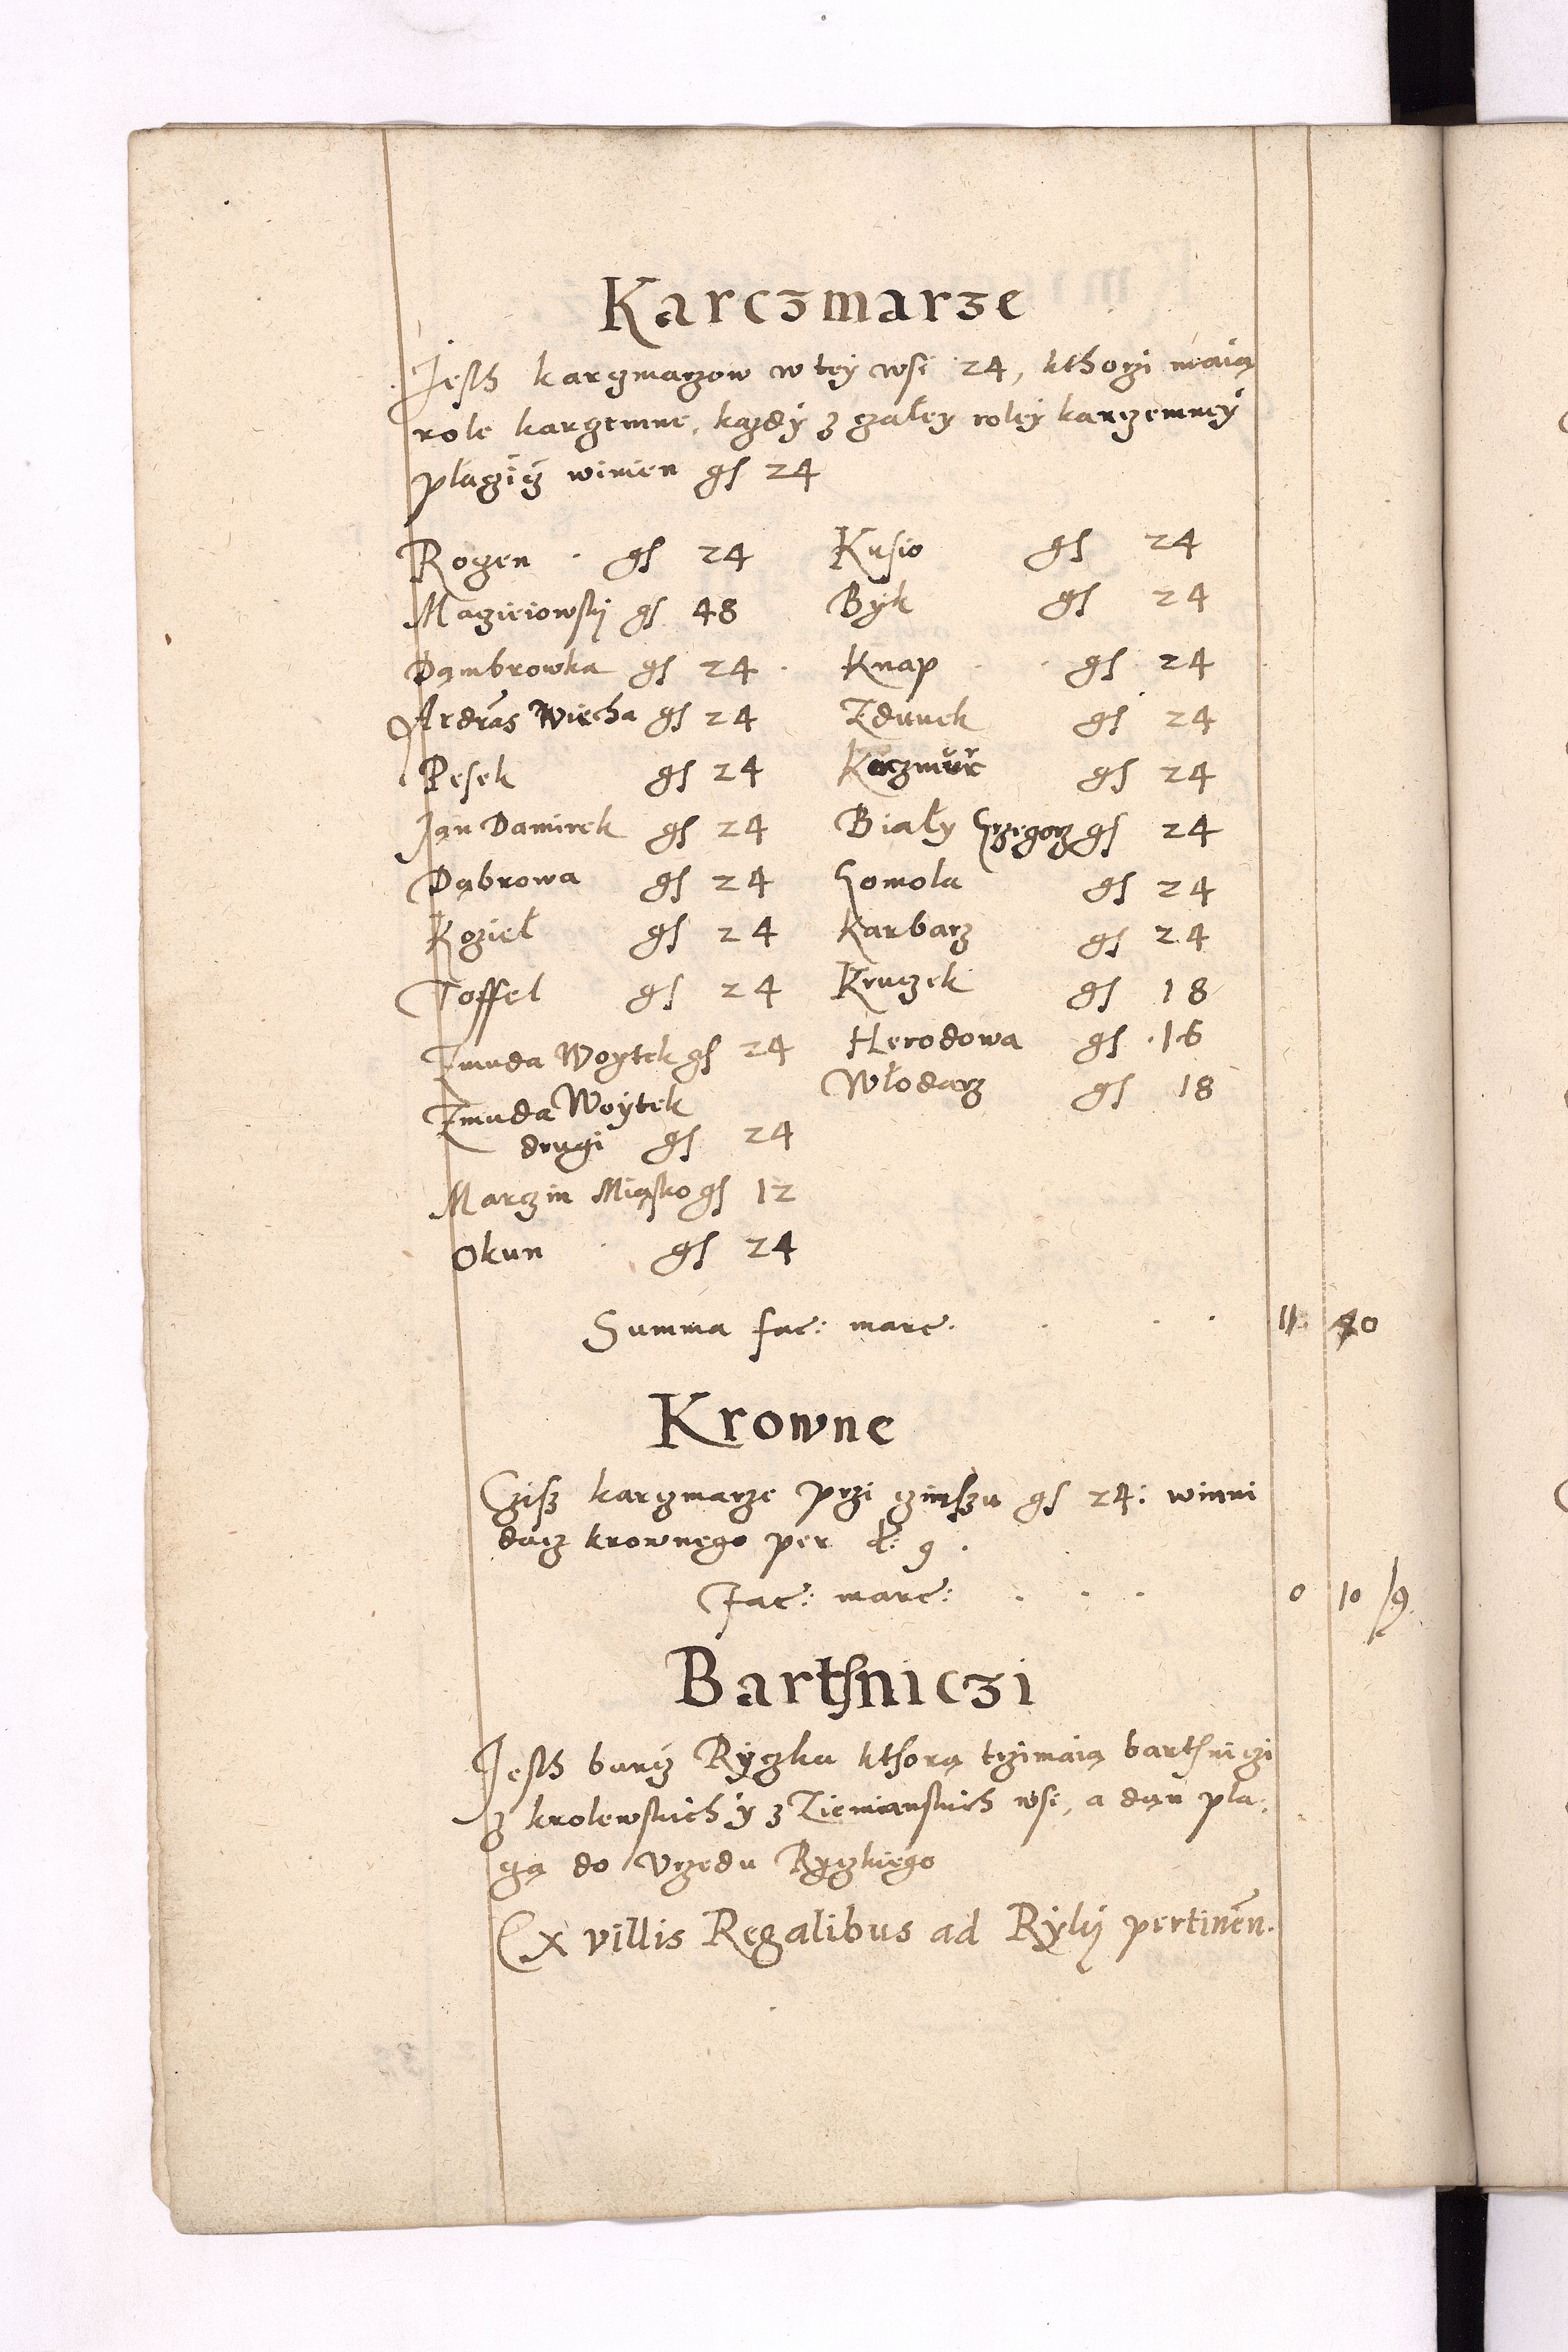 Karczmarze
Jesth karczmarzow w tey wsi 24, kthorzi maią
role karczemne, każdy z czałey roley karczemney
płaczicz winien gs 24
Rogen gs 24
Maczieiowskj gs 48
Dąmbrowka gs 24
Andras Wiecha gs 24
Pesek gs 24
Jan Damirek gs 24
Dąbrowa gs 24
Kozieł gs 24
Toffel gs 24
Zmuda Woytek gs 24
Zmuda Woytek
drugi gs 24
Marczin Miąsko gs 12
Okun gs 24
Kusio gs 24
Byk gs 24
Knap gs 24
Zdunek gs 24
gs 24
Biały Grzegorz gs 24
Gomola gs 24
Karbarz gs 24
Kruczek gs 18
Herodowa gs 16
Włodarz gs 18
Summa fac: marc. 11 40
Krowne
Cziż karczmarze przi czinszu gs 24: winni
dacz krownego per d: 9.
Fac: marc: 0 10 /9
Barthniczi
Jesth barcz Ryczka kthorą trzimaią barthniczi
z krolewskich y z Ziemianskich wsi, a dan pła:
czą do Vrzedu Ryczkiego
Ex villis Regalibus ad Ryky pertinen.